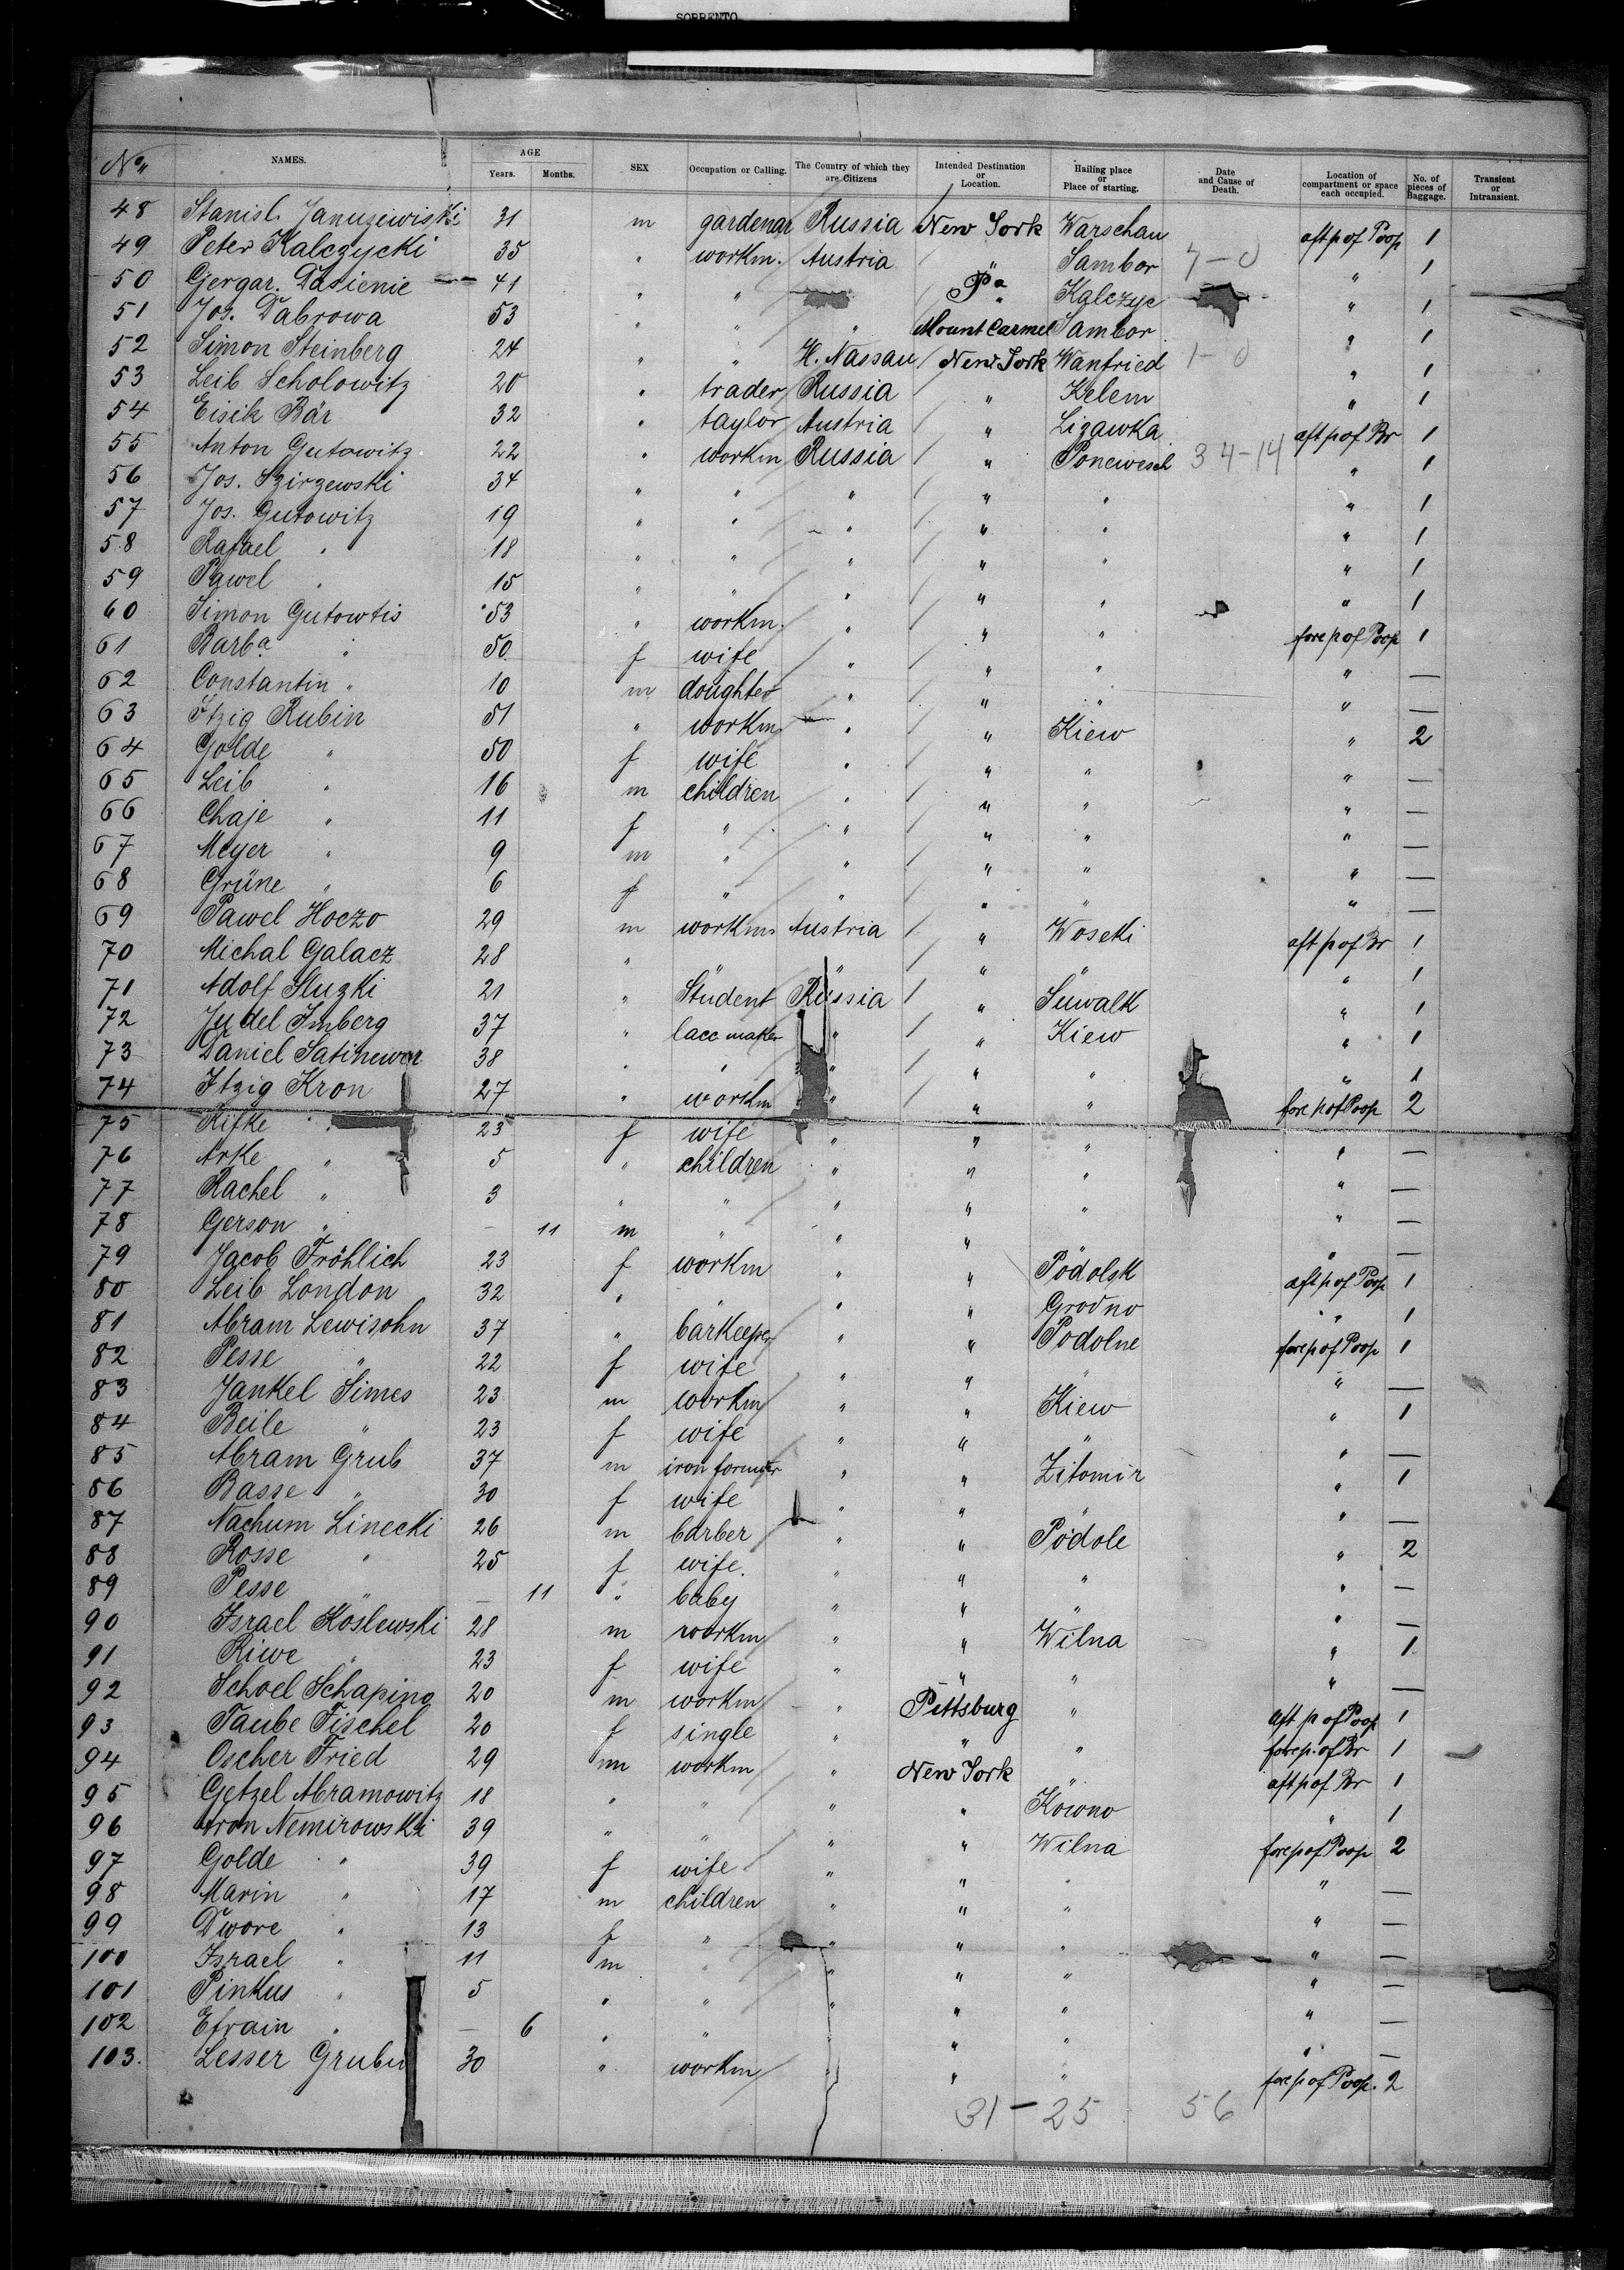 SORRENTO
No. NAMES. AGE Years. Months. SEX Occupation or Calling. The Country of which they are Citizens Intended Destination or Location. Hailing place or Place of starting. Date and Cause of Death. Location of compartment or space each occupied. No. of pieces of Baggage. Transient or Intransient.
48 Stanisl. Januzewiski 31 m gardenar Russia New York Warschau aft p of Poop 1
49 Peter Kalczycki 35 " workm. Austria " Sambor 7-0 " 1
50 Gergar. Dasienic 41 " " Pa " Kalczyc " 1
51 Jos. Dabrowa 53 " " " Mount Carmel Sambor " 1
52 Simon Steinberg 24 " " H. Nassau New York Wanfried 1-0 " 1
53 Leib Scholowitz 20 " trader Russia " Kelem " 1
54 Eisik Bär 32 " taylor Austria " Lizawka aft p of Br 1
55 Anton Gutowitz 22 " workm Russia " Ponewesch 34-14 " 1
56 Jos. Szirzewski 34 " " " " " " 1
57 Jos. Gutowitz 19 " " " " " " 1
58 Rafael " 18 " " " " " " 1
59 Pawel " 15 " " " " " " 1
60 Simon Gutowtis 53 " workm. " " " fore p of Poop 1
61 Barba " 50 f wife " " " " —
62 Constantin " 10 m doughter " " " " —
63 Itzig Rubin 51 " workm " " Kiew " 2
64 Golde " 50 f wife " " " " —
65 Leib " 16 m children " " " " —
66 Chaje " 11 f " " " " " —
67 Meyer " 9 m " " " " " —
68 Grüne " 6 f " " " " " —
69 Pawel Hoczo 29 m workm Austria " Woseki aft p of Br 1
70 Michal Galacz 28 " " " " " " 1
71 Adolf Sluzki 21 " Student Russia " Suwalk " 1
72 Judel Imberg 37 " lace maker " " Kiew " 1
73 Daniel Satinewer 38 " " " " " " 1
74 Itzig Kron 27 " workm " " " fore p of Poop 2
75 Rifke " 23 f wife " " " " —
76 Arke " 5 " children " " " " —
77 Rachel " 3 " " " " " " —
78 Gerson " — 11 m " " " " —
79 Jacob Fröhlich 23 f workm " " Podolsk aft p of Poop 1
80 Leib London 32 " " " " Grodno " 1
81 Abram Lewisohn 37 " barkeeper " " Podolne fore p of Poop 1
82 Pesse " 22 f wife " " " " —
83 Jankel Simes 23 m workm " " Kiew " 1
84 Beile " 23 f wife " " " " —
85 Abram Grub 37 m iron " " Zitomir " 1
86 Basse " 30 f wife " " " " —
87 Nachum Linecki 26 m barber " " Podole " 2
88 Rosse " 25 f wife. " " " " —
89 Pesse " — 11 " baby " " " " —
90 Israel Koslewski 28 m workm " " Wilna " 1
91 Riwe " 23 f wife " " " " —
92 Schoel Schapino 20 m workm " Pittsburg " aft p of Poop 1
93 Taube Fischel 20 f single " " " fore p. of Br 1
94 Oscher Fried 29 m workm " New York " aft p of Br 1
95 Getzel Abramowitz 18 " " " " Kowno " 1
96 Aron Nemirowski 39 " " " " Wilna fore p of Poop 2
97 Golde " 39 f wife " " " " —
98 Marin " 17 m children " " " " —
99 Dwore " 13 f " " " " " —
100 Israel " 11 m " " " " " —
101 Pinkus " 5 " " " " " " —
102 Efrain " — 6 " " " " " " —
103. Lesser Gruber 30 " workm " " " fore p of Poop. 2
31-25 56